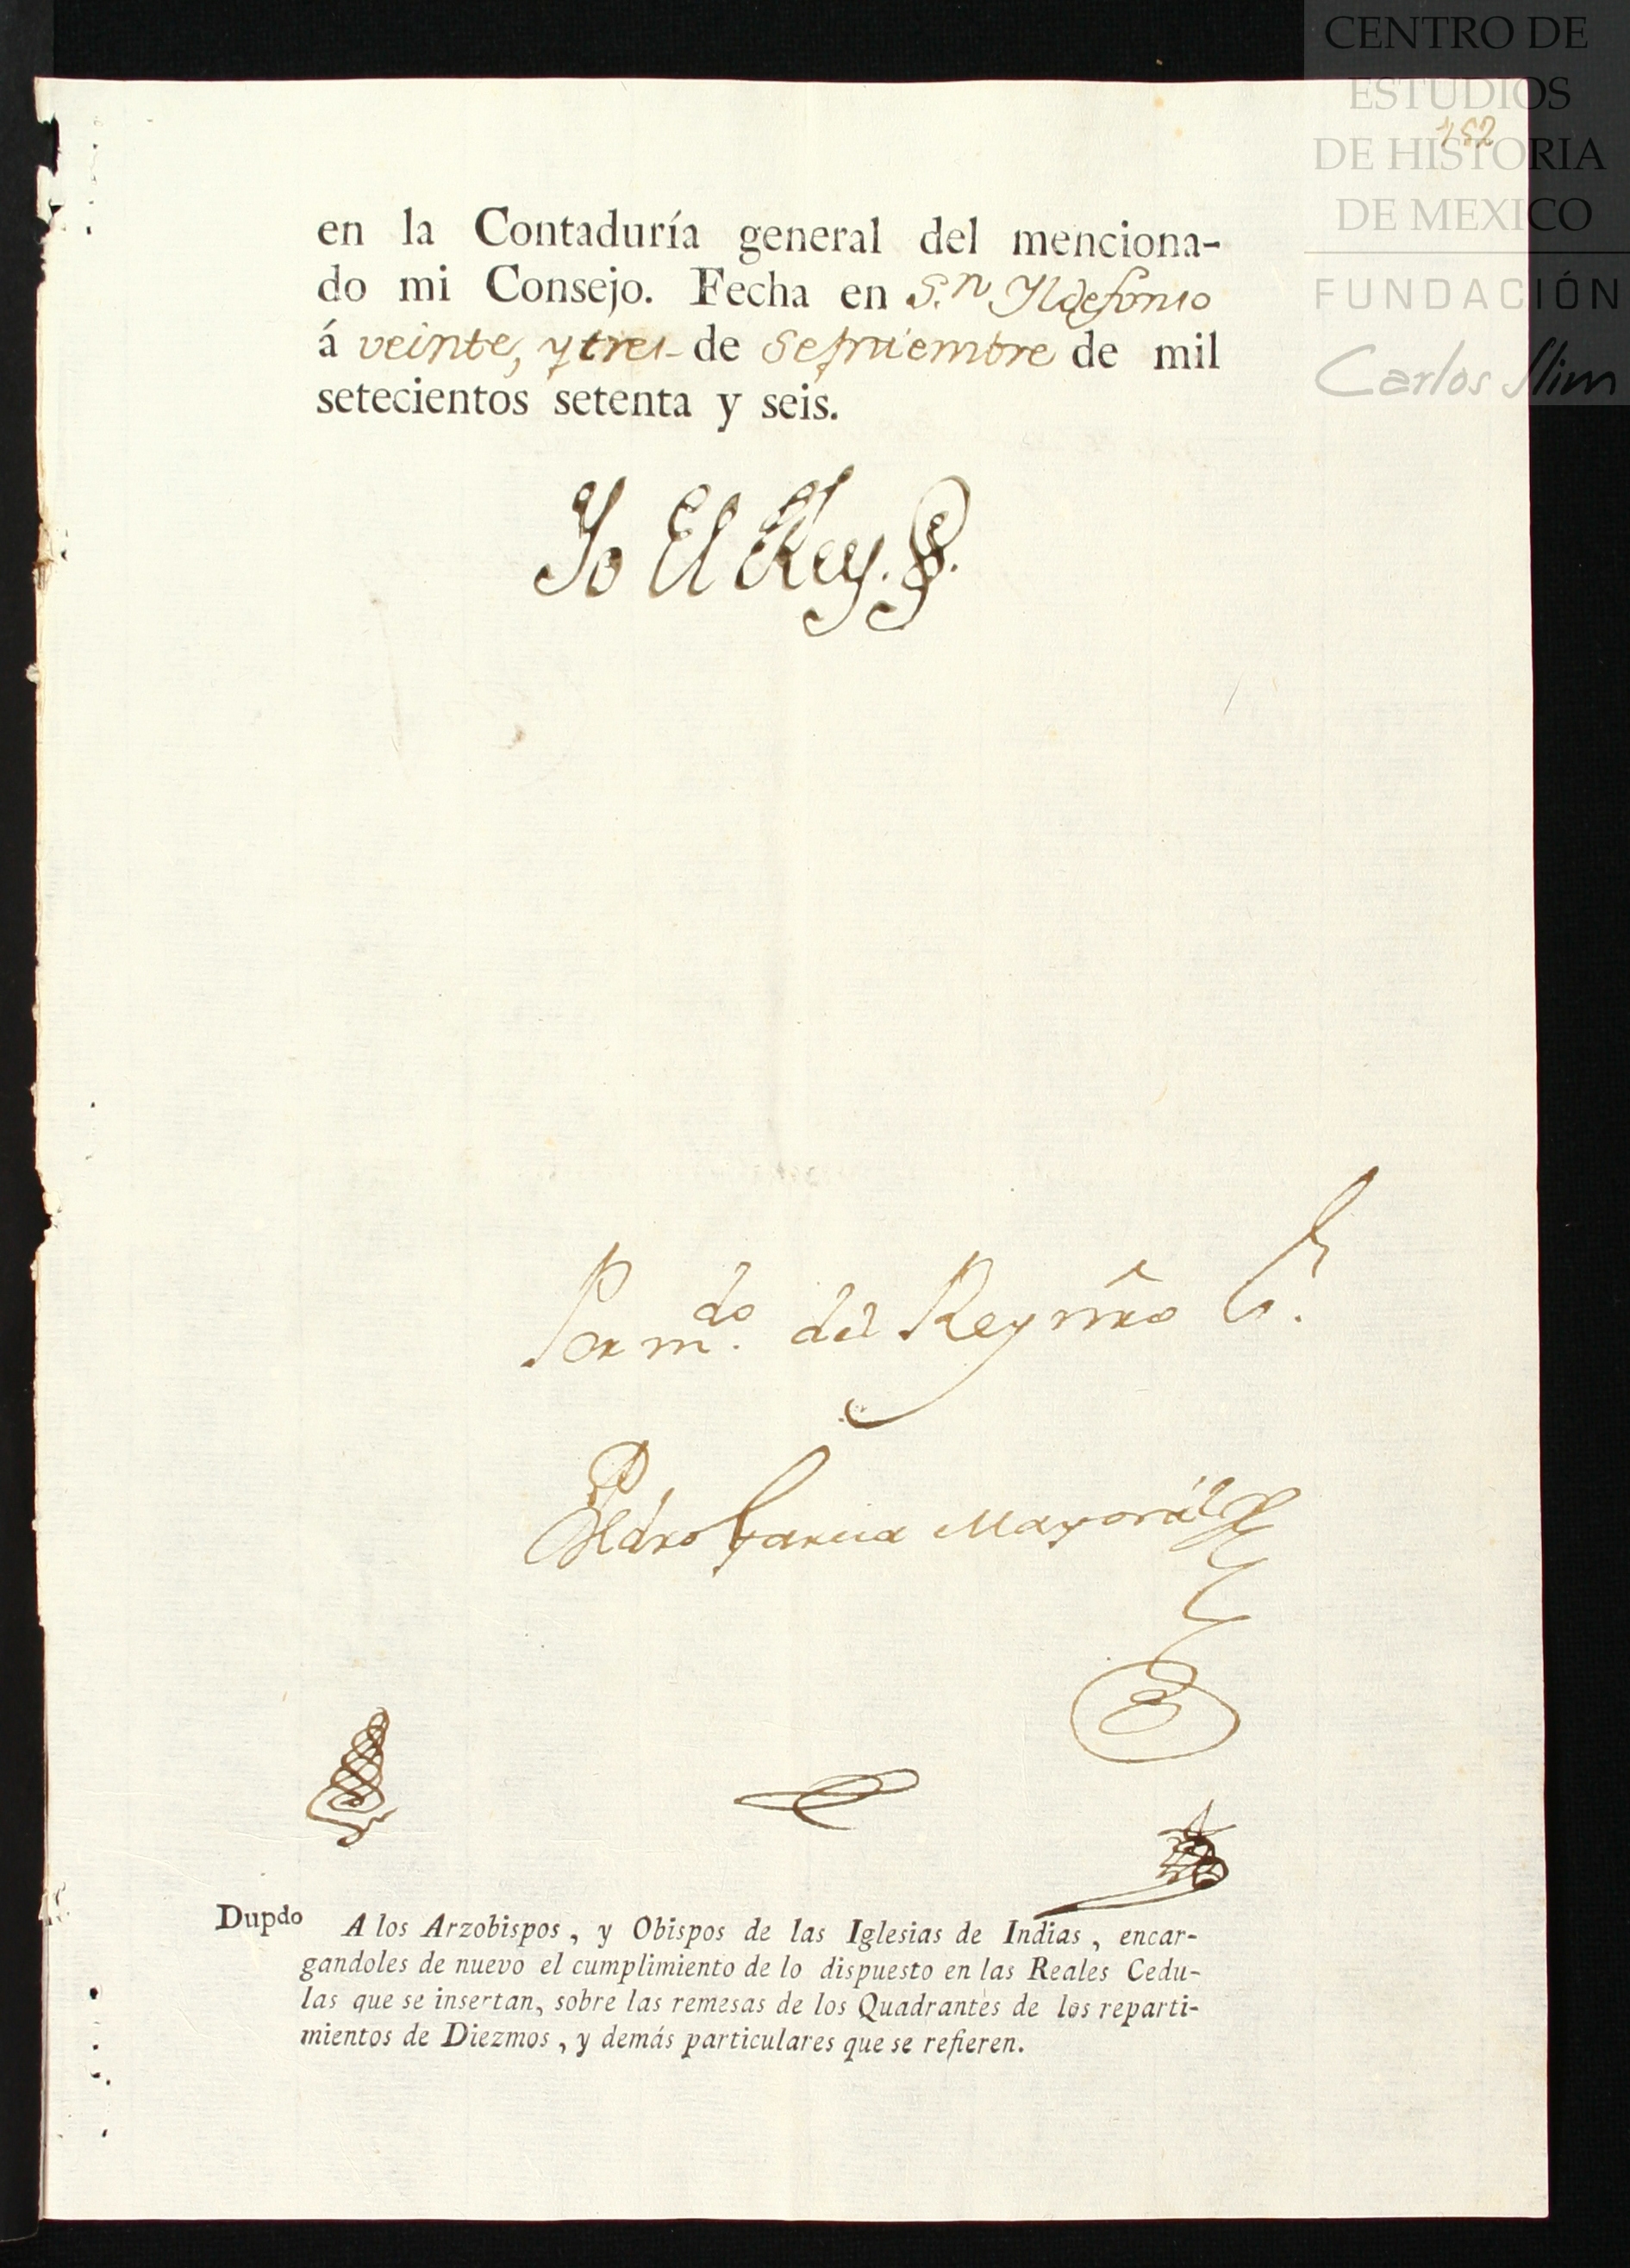 CENTRO DE
ESTUDIOS
DE HISTORIA
DE MEXICO
FUNDACIÓN
Carlos Slim
152
en la Contaduría general del menciona-
do mi Consejo. Fecha en S.n Yldefonso
á veinte, y tres de Septiembre de mil
setecientos setenta y seis.
Yo El Rey.
Por m.do del Rey nro S.
Pedro Garcia Mayoral
Dupdo A los Arzobispos, y Obispos de las Iglesias de Indias, encar-
gandoles de nuevo el cumplimiento de lo dispuesto en las Reales Cedu-
las que se insertan, sobre las remesas de los Quadrantes de los reparti-
mientos de Diezmos, y demás particulares que se refieren.